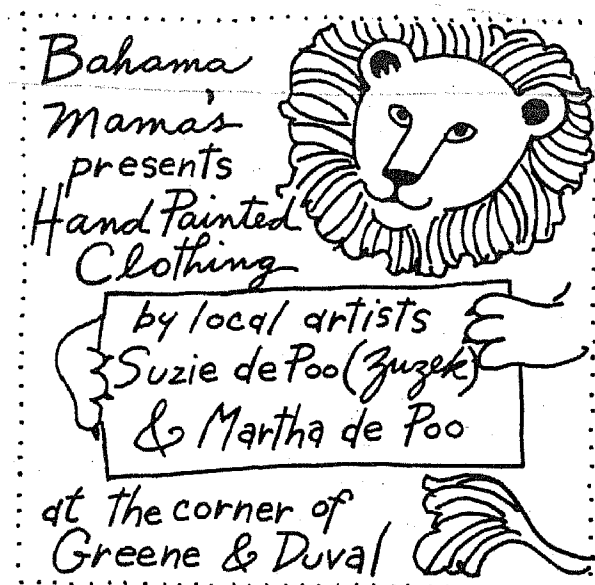 Bahama
Mama's
presents
Hand Painted
Clothing
by local artists
Suzie de Poo (Zuzek)
& Martha de Poo
at the corner of
Greene & Duval